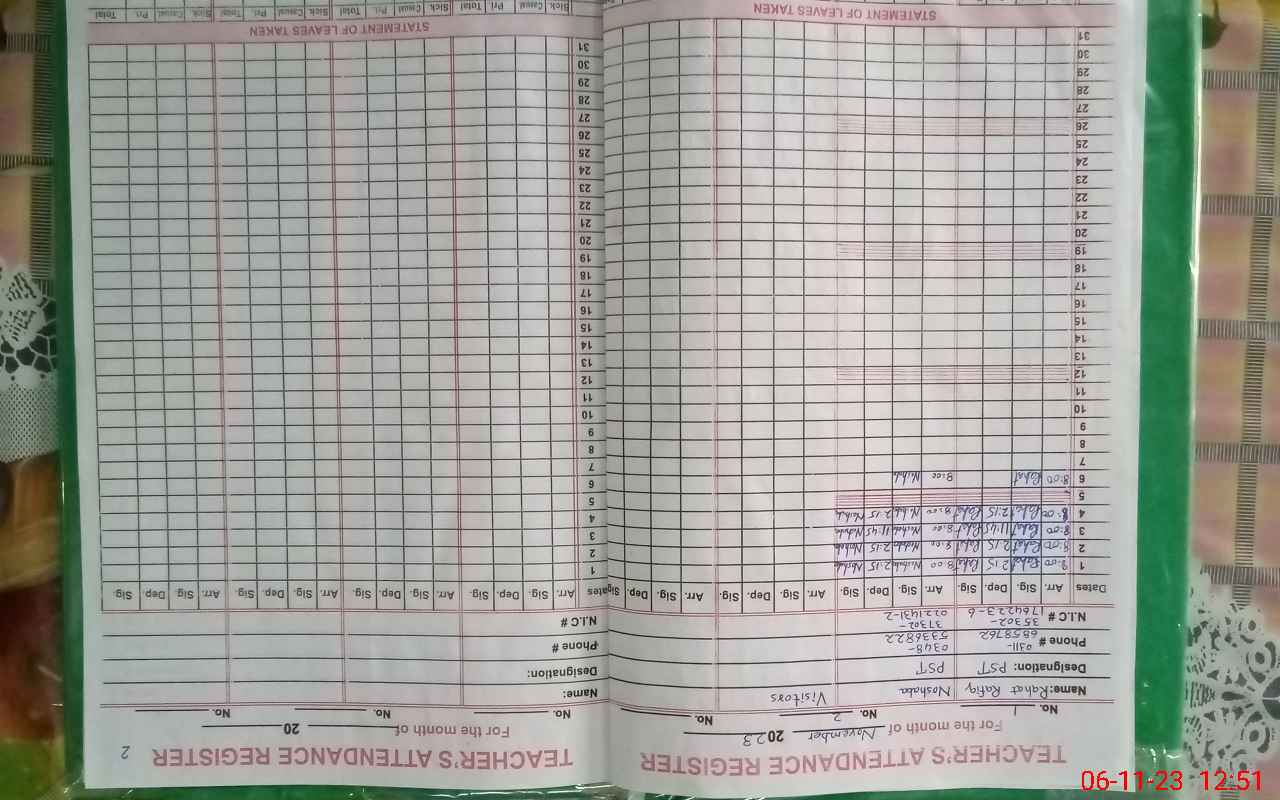 TEACHER'S ATTENDANCE REGISTER
For the month of November 2023
No. 1 No. 2 No.
Name: Rahat Rafiq Noshaba Visitors
Designation: PST PST
Phone # 0311- 0348-
6858762 5336822
N.I.C # 35302- 37302-
176423-6 0221431-2
Dates Arr. Sig. Dep. Sig. Arr. Sig. Dep. Sig. Arr. Sig. Dep. Sig. Arr. Sig. Dep. Sig.
1 8:00 Rahat 2:15 Rahat 8:00 2:15
2 8:00 Rahat 2:15 Rahat 8:00 2:15
3 8:00 Rahat 11:45 Rahat 8:00 11:45
4 8:00 Rahat 2:15 Rahat 8:00 2:15
5
6 8:00 Rahat 8:00
7
8
9
10
11
12
13
14
15
16
17
18
19
20
21
22
23
24
25
26
27
28
29
30
31
STATEMENT OF LEAVES TAKEN
TEACHER'S ATTENDANCE REGISTER 2
For the month of 20
No. No. No.
Name:
Designation:
Phone #
N.I.C #
Arr. Sig. Dep. Sig. Arr. Sig. Dep. Sig. Arr. Sig. Dep. Sig. Arr. Sig. Dep. Sig.
1
2
3
4
5
6
7
8
9
10
11
12
13
14
15
16
17
18
19
20
21
22
23
24
25
26
27
28
29
30
31
STATEMENT OF LEAVES TAKEN
Sick. Casual Pri. Total Sick. Casual Pri. Total Sick. Casual Pri. Total Sick. Casual Pri. Total
06-11-23 12:51